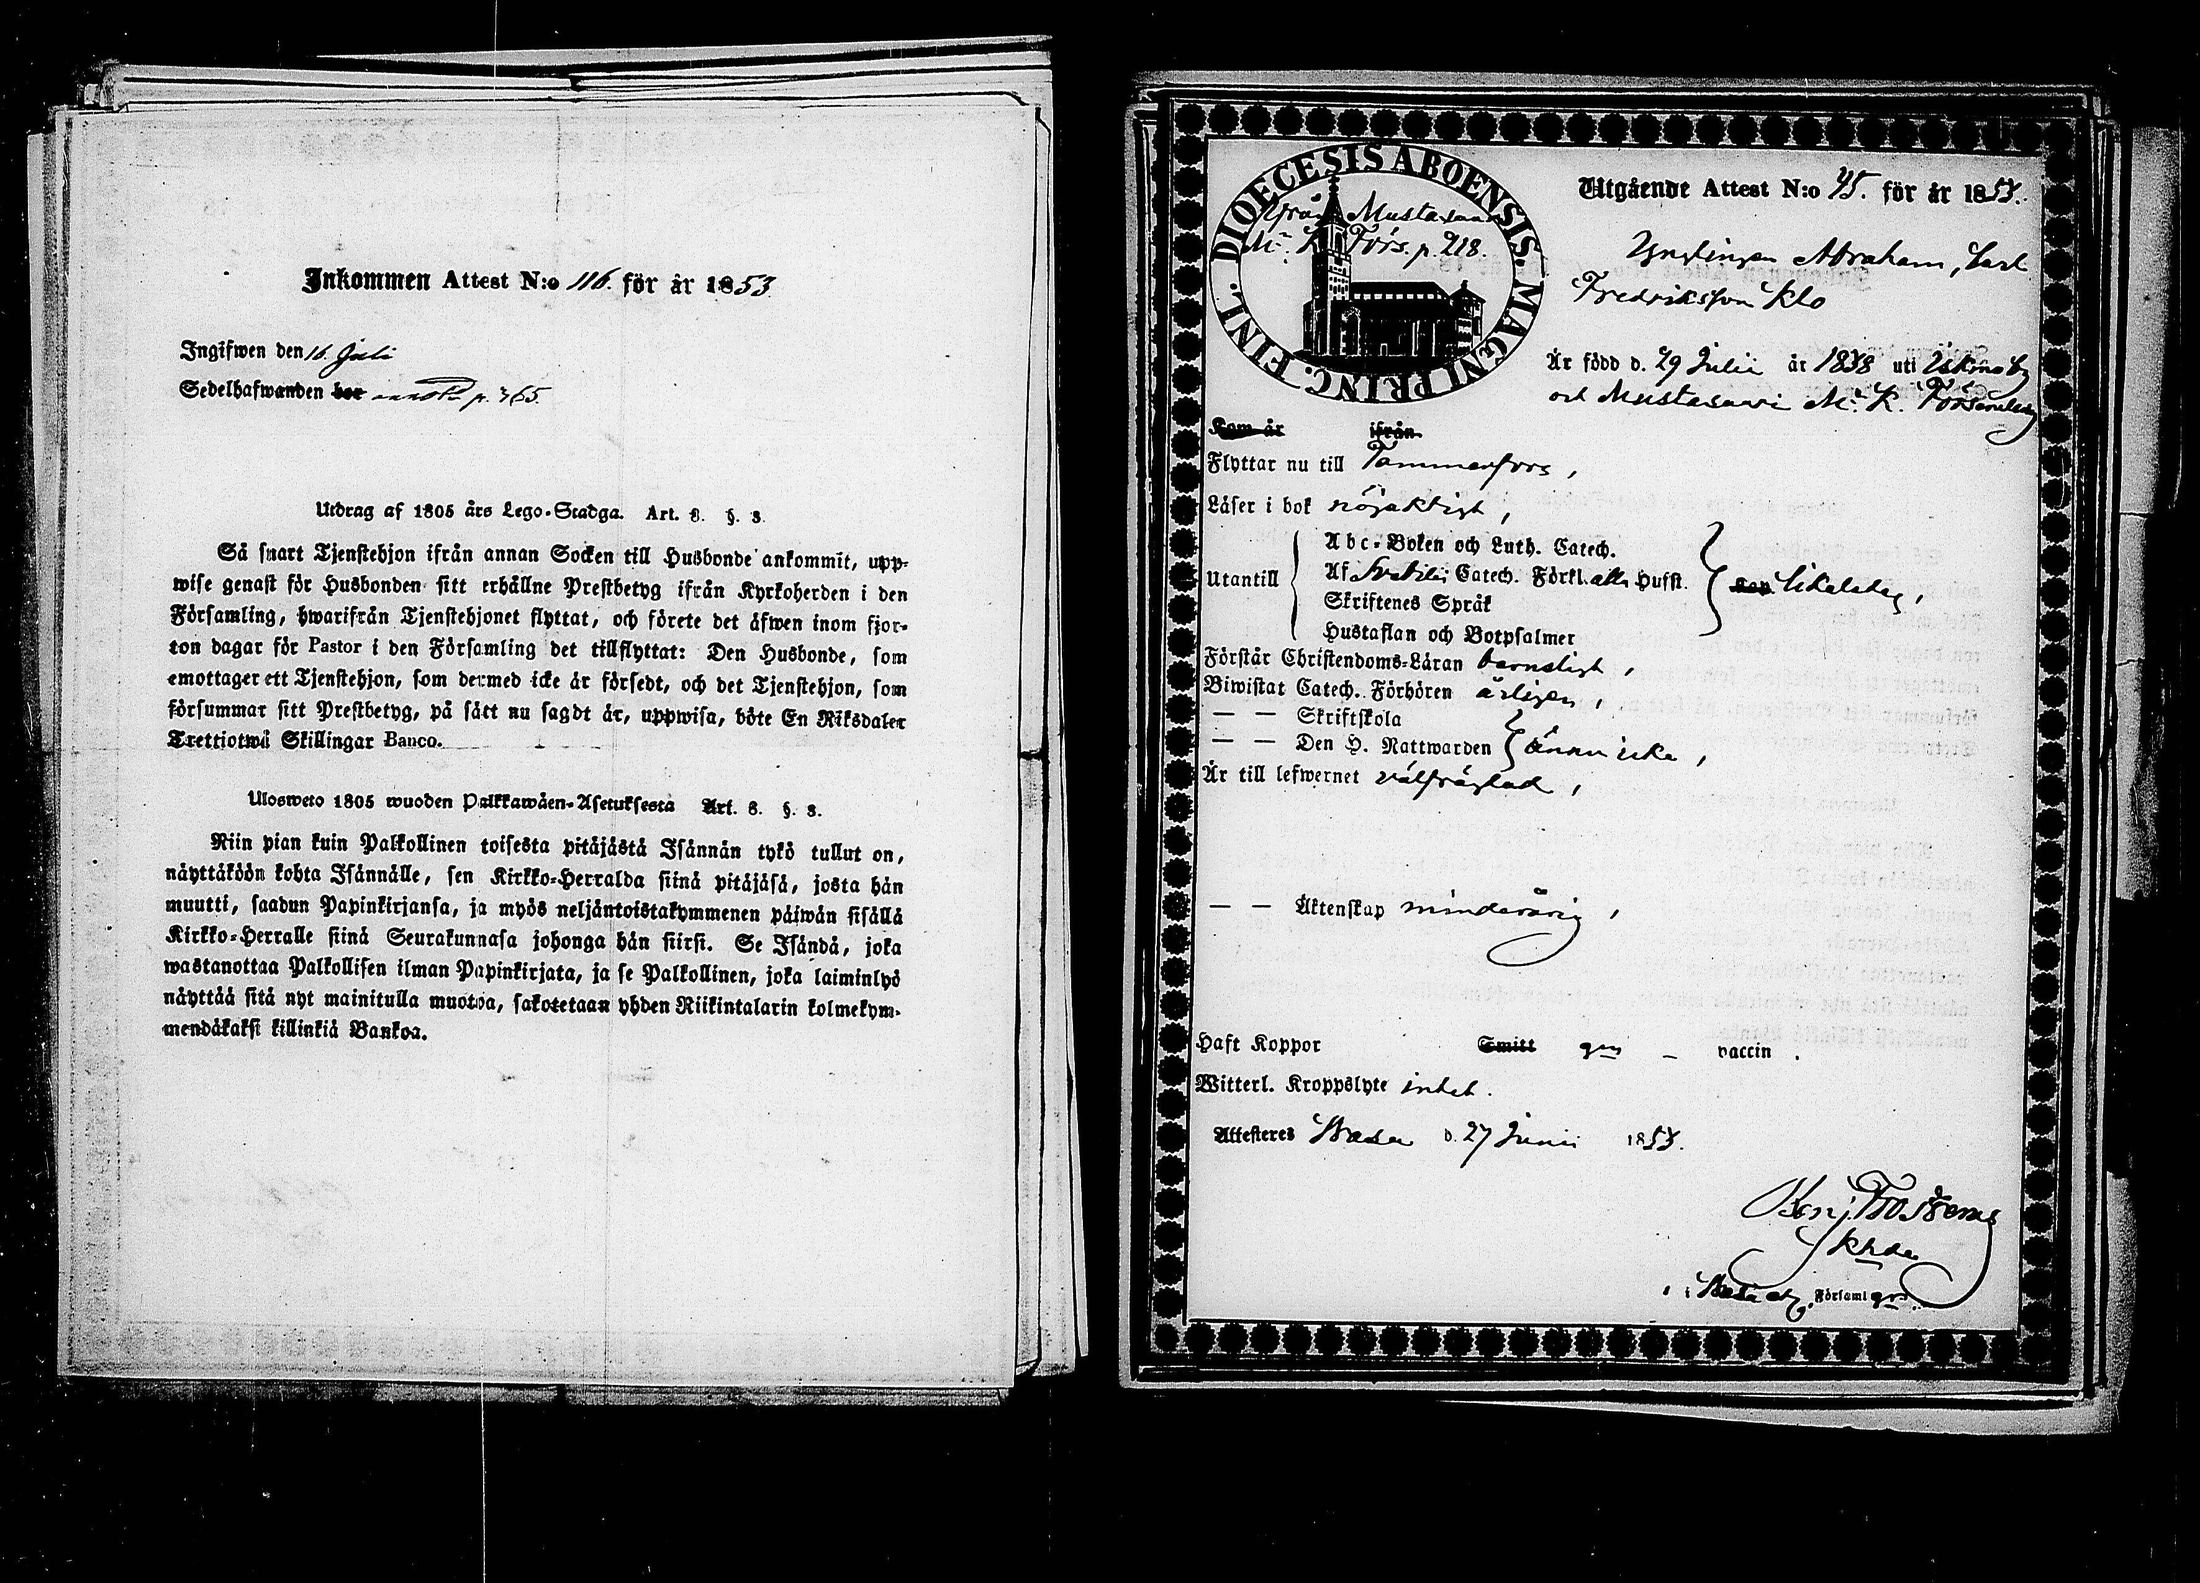 Inkommen Attest N:o 116. för år 1853.
Ingifwen den 16. Juli
Sedelhafwanden bor p. 365.
Utdrag af 1805 års Lego-Stadga. Art. 8. §. 3.
Så snart Tjenstehjon ifrån annan Socken till Husbonde ankommit, upp-
wise genast för Husbonden sitt erhållne Prestbetyg ifrån Kyrkoherden i den
Församling, hwarifrån Tjenstehjonet flyttat, och förete det äfwen inom fjor-
ton dagar för Pastor i den Församling det tillflyttat: Den Husbonde, som
emottager ett Tjenstehjon, som dermed icke är försedt, och det Tjenstehjon, som
försummar sitt Prestbetyg, på sätt nu sagdt är, uppwisa, böte En Riksdaler
Trettiotwå Skillingar Banco.
Ulosweto 1805 wuoden Palkkawäen-Asetuksesta Art. 8. §. 3.
Niin pian kuin Palkollinen toisesta pitäjästä Isännän tykö tullut on,
näyttäköön kohta Isännälle, sen Kirkko-Herralda siinä pitäjäsä, josta hän
muutti, saadun Papinkirjansa, ja myös neljäntoistakymmenen päiwän sisällä
Kirkko-Herralle siinä Seurakunnasa johonga hän siirsi. Se Isändä, joka
wastanottaa Palkollisen ilman Papinkirjata, ja se Palkollinen, joka laiminlyö
näyttää sitä nyt mainitulla muotoa, sakotetaan yhden Riikintalarin kolmekym-
mendäkaksi killinkiä Bankoa.
DIOECESIS ABOENSIS. MAGNI PRINC. FINL.
från Mustasaari
Förs. p. 218.
Utgående Attest N:o 45. för år 1853.
Ynglingen Abraham, Carl
Fredriksson Klo
Är född d. 29 Julii år 1838 uti Iskmo by
och Mustasaari M: K. Församling
Kom år ifrån
Flyttar nu till Tammerfors,
Läser i bok nöjaktigt,
Utantill
Abc-Boken och Luth. Catech.
Af Svebilii Catech. Förkl. alla Hufst.
Skriftenes Språk
Hustaflan och Botpsalmer
likaledes,
Förstår Christendoms-Läran barnsligt,
Biwistat Catech. Förhören årligen,
— — Skriftskola
— — Den H. Nattwarden ännu icke,
Är till lefwernet välfrägdad,
— — Äktenskap minderårig,
Haft Koppor Smitt gm vaccin.
Witterl. Kroppslyte intet.
Attesteres Wasa d. 27 Junii 1853.
Benj. Frosterus
Khde
i Wasa Församl